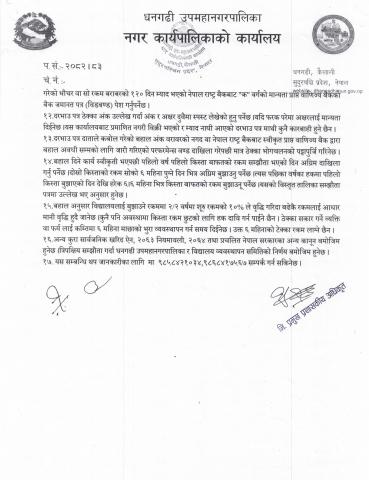 धनगढी उपमहानगरपालिका
नगर कार्यपालिकाको कार्यालय
धनगढी, कैलाली
सुदूरपश्चिम प्रदेश, नेपाल
प. सं:-२०८२।८३
च. नं:-
गरेको भौचर वा सो रकम बराबरको १२० दिन म्याद भएको नेपाल राष्ट्र बैंकबाट "क" वर्गको मान्यता प्राप्त वाणिज्य बैंकको
बैंक जमानत पत्र (विडबण्ड) पेश गर्नुपर्नेछ ।
१२.दरभाउ पत्रमा ठेक्का अंक उल्लेख गर्दा अंक र अक्षर दुवैमा स्पस्ट लेखेको हुनु पर्नेछ (यदि फरक परेमा अक्षरलाई मान्यता
दिईनेछ ।यस कार्यालयबाट प्रमाणित नगरी विक्री भएको र म्याद नाघी आएको दरभाउ पत्र माथी कुनै कारबाही हुने छैन ।
१३.दरभाउ पत्र दाताले कबोल गरेको बहाल अंक बराबरको नगद वा नेपाल राष्ट्र बैंकबाट स्वीकृत प्राप्त वाणिज्य बैंक द्वारा
बहाल अवधी सम्मको लागि जारी गरिएको परफरमेन्स वण्ड दाखिला गरेपछी मात्र ठेक्का भोगचलनको पट्टापुर्जि गरिनेछ ।
१४.बहाल दिने कार्य स्वीकृती भएपछी पहिलो वर्ष पहिलो किस्ता वाफतको रकम सम्झौता भएको दिन अग्रिम दाखिला
गर्नु पर्नेछ । दोस्रो किस्ताको रकम सोको ६ महिना पुग्ने दिन भित्र अग्रिम बुझाउनु पर्नेछ ।त्यस पछिका वर्षका हकमा पहिलो
किस्ता बुझाएको दिन देखि हरेक ६/६ महिना भित्र किस्ता बाफतको रकम बुझाउनु पर्नेछ ।यसको विस्तृत तालिका सम्झौता
पत्रमा उल्लेख भए अनुसार हुनेछ ।
१५.बहाल अनुसार विद्यालयलाई बुझाउने रकममा २/२ वर्षमा शुरु रकमको १०% ले वृद्धि गरिदा बढेकै रकमलाई आधार
मानी वृद्धि हुदै जानेछ ।कुनै पनि अवस्थामा किस्ता रकम छुटको लागि हक दावि गर्न पाईने छैन । ठेक्का सकार गर्ने व्यक्ति
वा फर्म लाई कम्तिमा ६ महिना माछाको भुरा व्यवस्थापन गर्न समय दिनेछ । उक्त ६ महिनाको ठेक्का रकम लाग्ने छैन ।
१६.अन्य कुरा सार्वजनिक खरिद ऐन, २०६३ नियमावली, २०६४ तथा प्रचलित नेपाल सरकारका अन्य कानून बमोजिम
हुनेछ ।त्रिपक्षिय सम्झौता गर्दा धनगढी उपमहानगरपालिका र विद्यालय व्यवस्थापन समितिको निर्णय बमोजिम हुनेछ ।
१७. यस सम्बन्धि थप जानकारीका लागि मा ९८५८४२१०३४,९८६८४१७५६७ सम्पर्क गर्न सकिनेछ ।
नि. प्रमुख प्रशासकीय अधिकृत